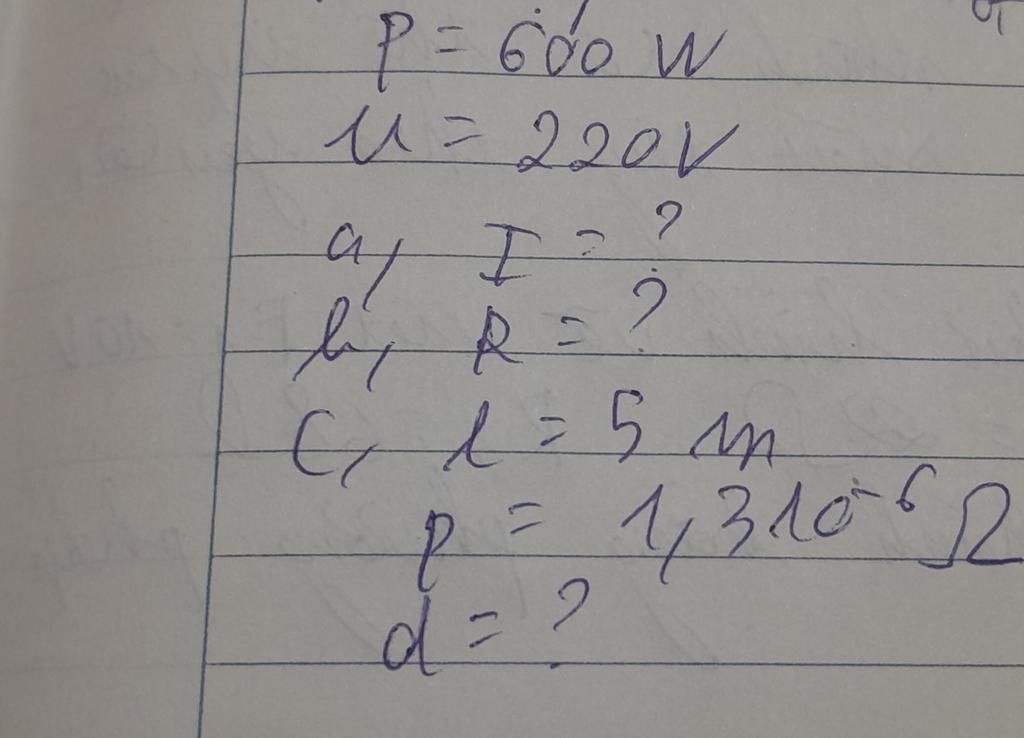 P = 600 W
U = 220V
a, I = ?
b, R = ?
c, l = 5 m
ρ = 1,3 10⁻⁶ Ω
d = ?